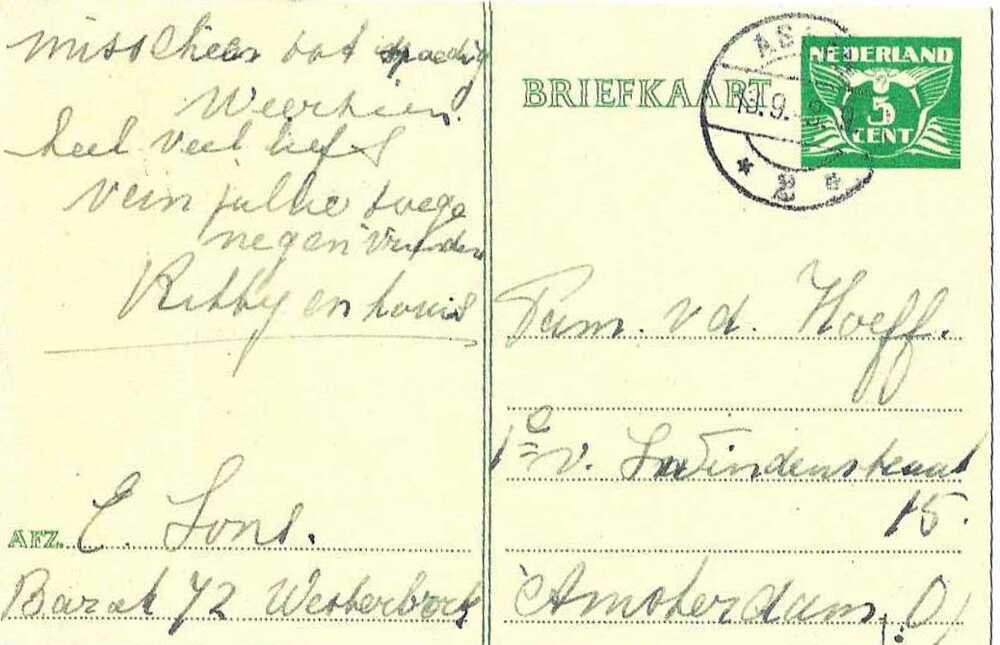 misschien tot spoedig
Weerzien.
heel veel liefs
van jullie toege
negen vrienden
Kitty en Louis
AFZ. E. Sons.
Barak 72 Westerbork
BRIEFKAART
NEDERLAND
5
CENT
ASSEN
Fam. v d. Hoeff.
1e v. Swindenstraat
15.
Amsterdam. O.